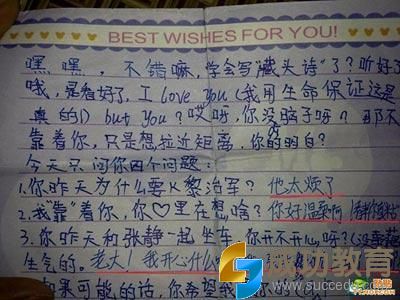 BEST WISHES FOR YOU!
嘿嘿，不错嘛，学会写"藏头诗"了？听好了
哦，是看好了，I love you（我用生命保证这是
真的）but you？哎呀，你没脑子呀？那不
靠着你，只是想拉近距离，你的明白？
今天只问你四个问题：
1.你昨天为什么要K黎治军？他太烦了
2.我"靠"着你，你♡里在想啥？你好温柔啊
3.你昨天和张静一起坐车，你开不开心呀？
生气的。老大！我开心什么
如果可能的话，你希望我
成功教育